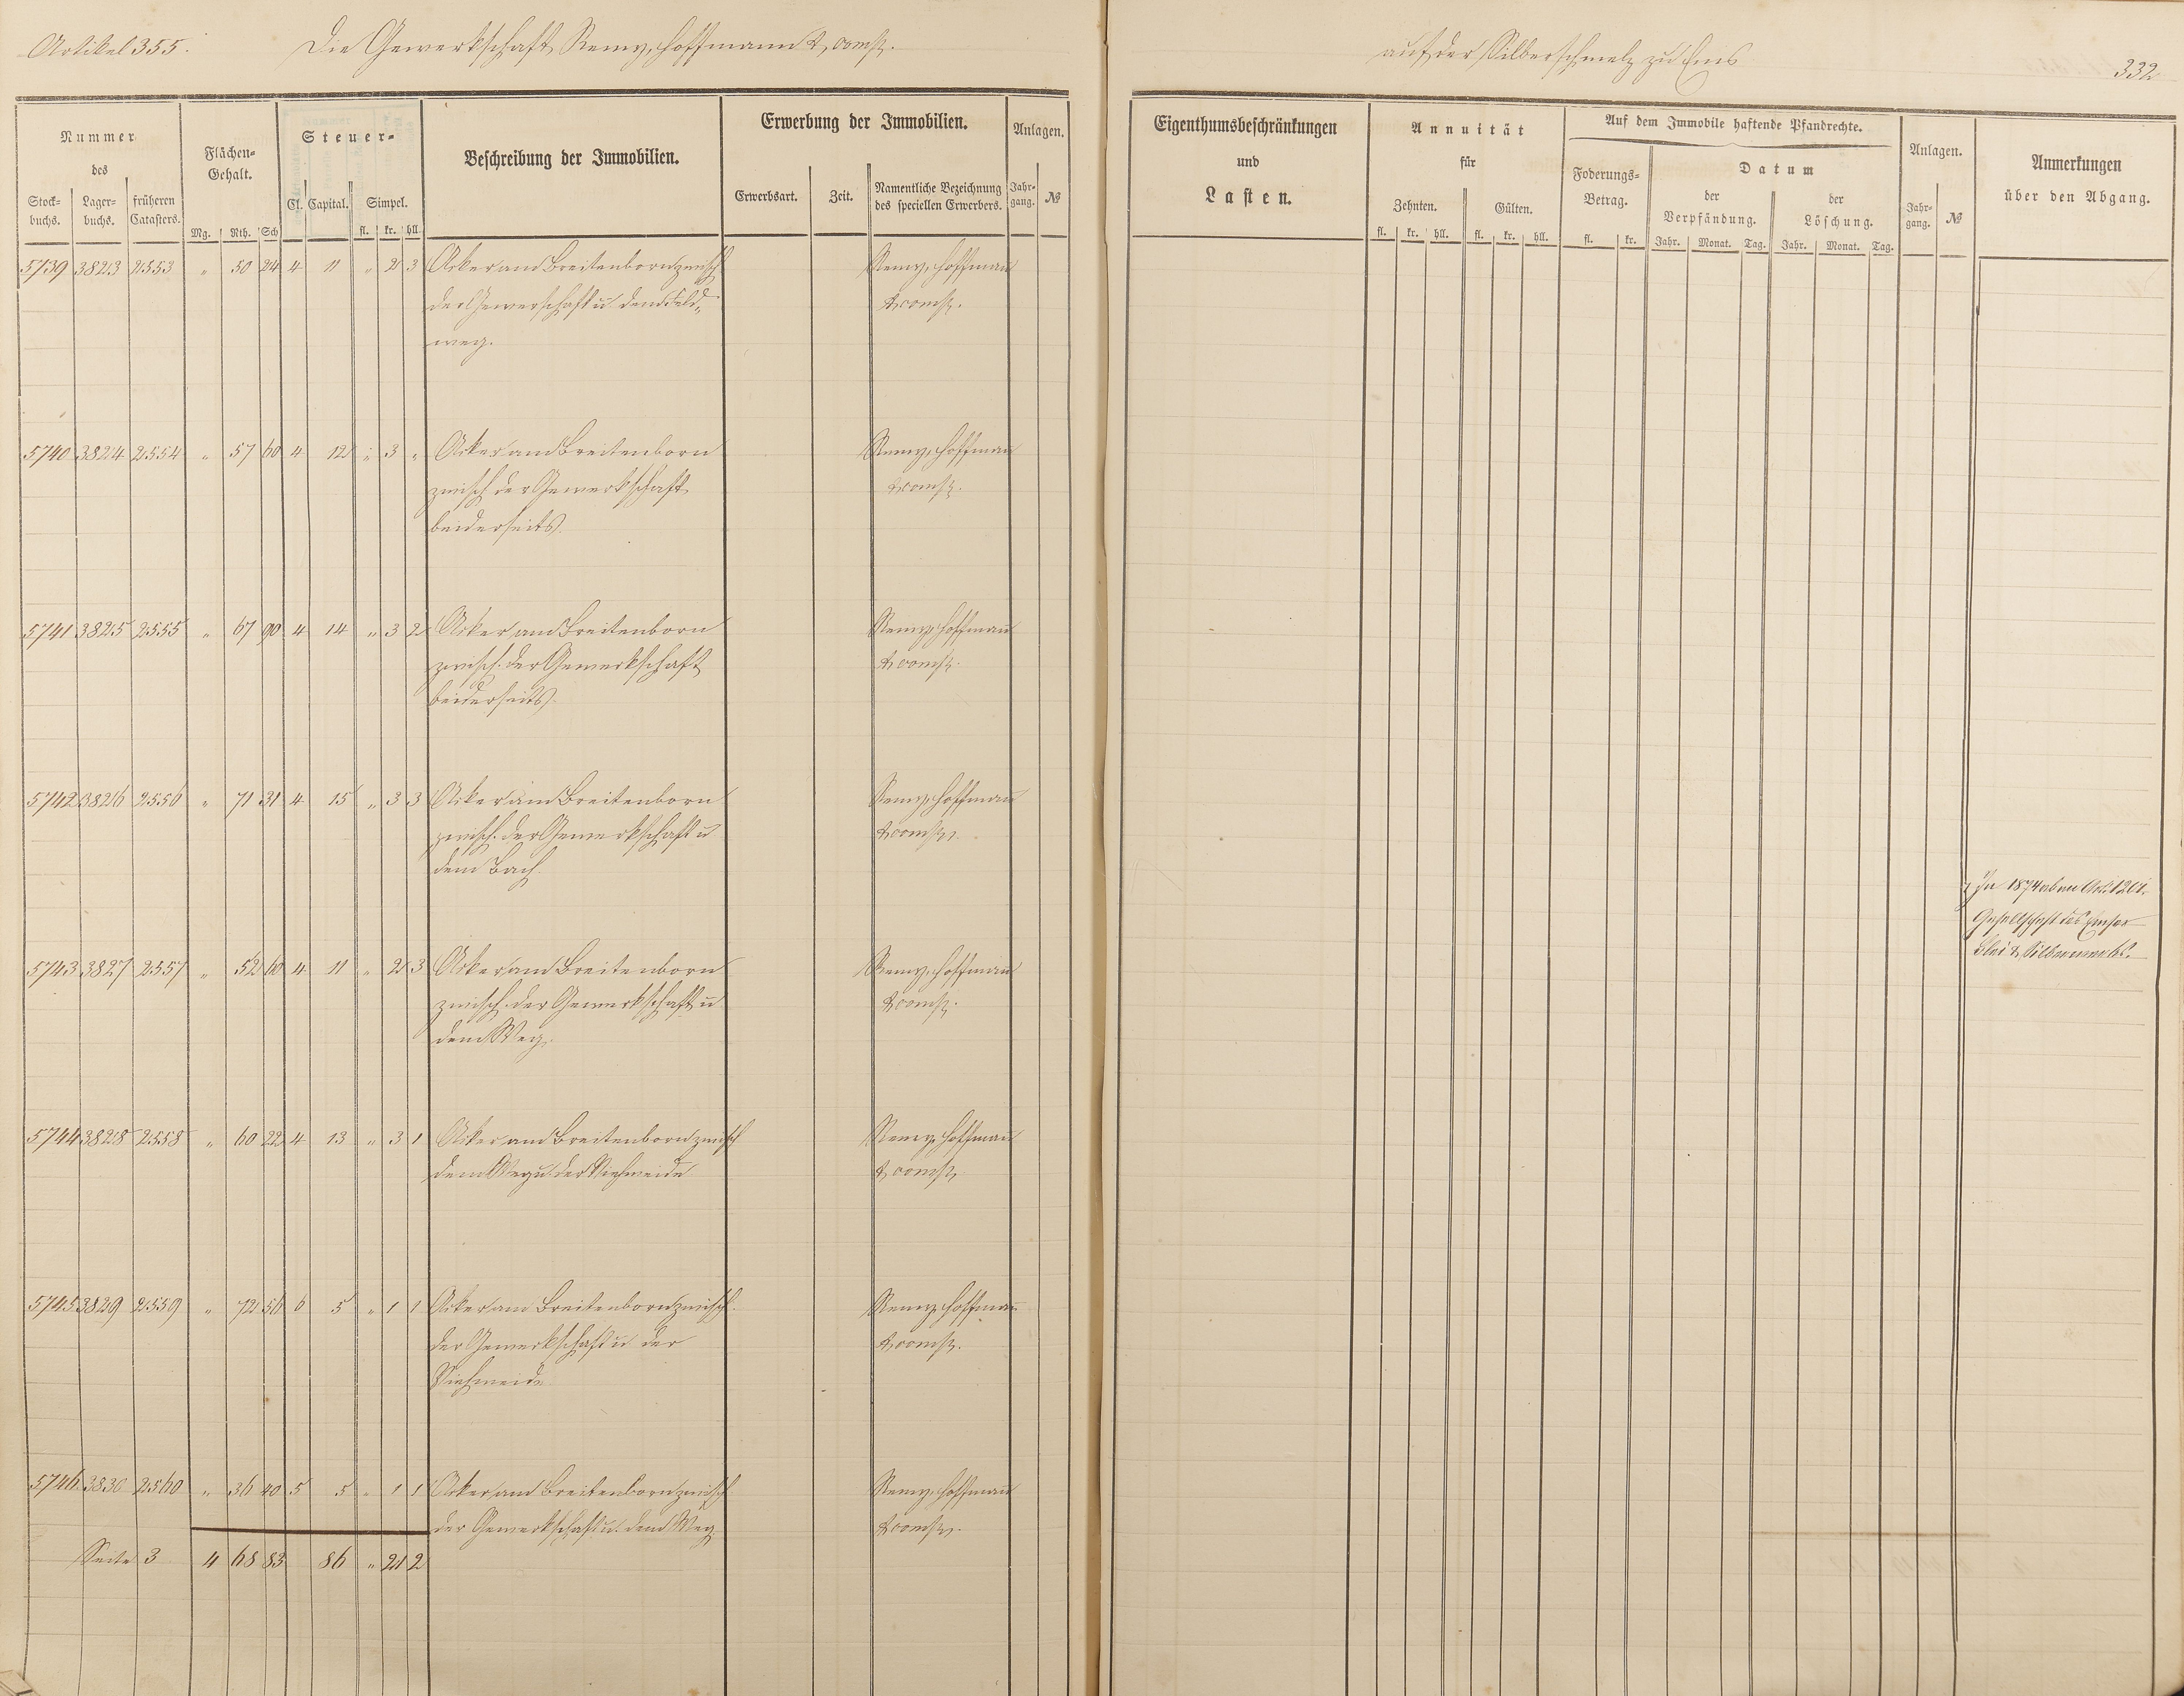 Artikel 355. Die Gewerkschaft Remy, Hoffmann & Comp. auf der Silberschmelz zu Ems 332
Nummer
des
Stock-buchs. Lager-buchs. früheren Catasters.
Flächen-Gehalt.
Mg. Rth. Sch
Steuer-
Cl. Capital. Simpel.
fl. kr. hll.
Beschreibung der Immobilien.
Erwerbung der Immobilien.
Erwerbsart. Zeit. Namentliche Bezeichnung des speciellen Erwerbers.
Anlagen.
Jahr-gang. №
Eigenthumsbeschränkungen
und
Lasten.
Annuität
für
Zehnten. Gülten.
fl. kr. hll. fl. kr. hll.
Auf dem Immobile haftende Pfandrechte.
Foderungs-Betrag.
fl. kr.
Datum
der Verpfändung. der Löschung.
Jahr. Monat. Tag. Jahr. Monat. Tag.
Anlagen.
Jahr-gang. №
Anmerkungen
über den Abgang.
5739 3823 2553 " 50 24 4 11 " 2 3 Acker am Breitenborn zwisch Remy, Hoffmañ
der Gewerschaft u. dem Feld- & Comp.
weg.
5740 3824 2554 " 57 60 4 12 " 3 " Acker am Breitenborn Remy, Hoffmañ
zwisch der Gewerkschaft & Comp.
beiderseits.
5741 3825 2555 " 67 90 4 14 " 3 2 Acker am Breitenborn Remy, Hoffmañ
zwisch. der Gewerkschaft & Comp.
beiderseits.
5742 3826 2556 " 71 31 4 15 " 3 3 Acker am Breitenborn Remy, Hoffmañ
zwisch. der Gewerkschaft u & Comp.
dem Bach.
In 1874 Art. 1201.
Gesellschaft des Emser
Blei & Silberwerks.
5743 3827 2557 " 52 60 4 11 " 2 3 Acker am Breitenborn Remy, Hoffmañ
zwisch. der Gewerkschaft u & Comp.
dem Weg.
5744 3828 2558 " 60 22 4 13 " 3 1 Acker am Breitenborn zwisch Remy, Hoffmañ
dem Weg u. der Viehweide & Comp.
5745 3829 2559 " 72 56 6 5 " 1 1 Acker am Breitenborn zwisch. Remy, Hoffmañ
der Gewerkschaft u. der & Comp.
Viehweide
5746 3830 2560 " 36 40 5 5 " 1 1 Acker am Breitenborn zwisch Remy, Hoffmañ
der Gewerkschaft u. dem Weg & Comp.
Seite 3 4 68 83 86 " 21 2